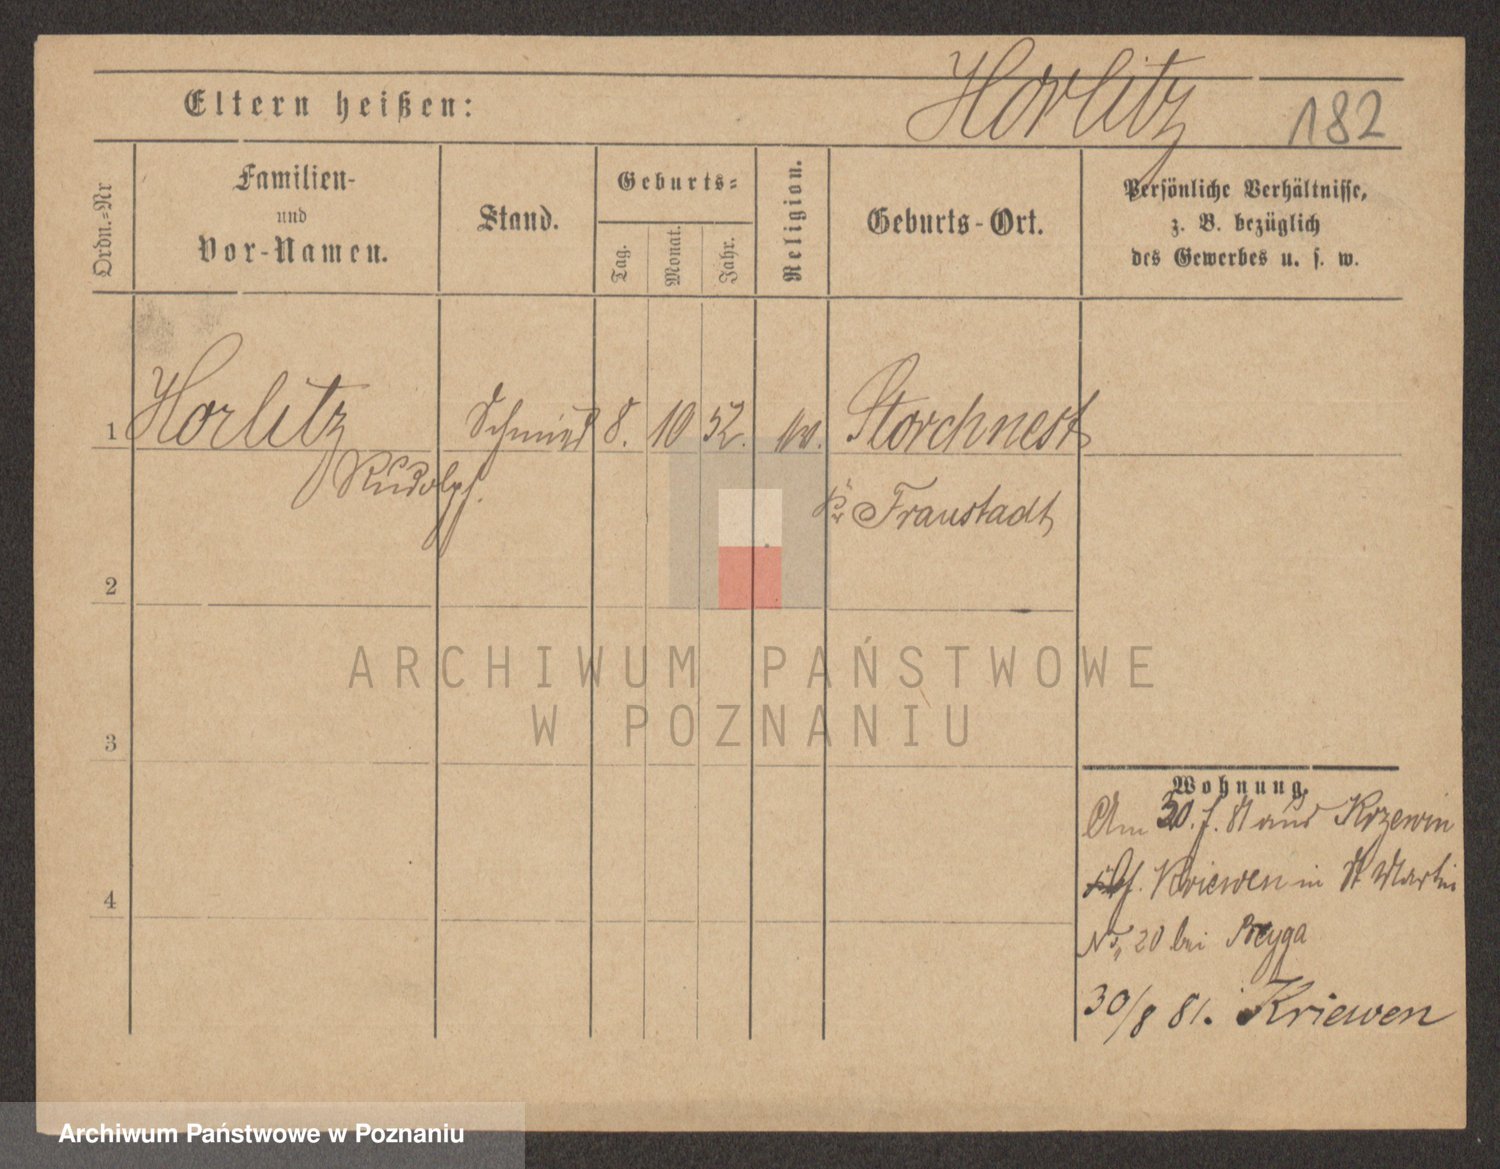 Horlitz
182
Eltern heißen:
Ordn.=Nr
Familien-
und
Vor-Namen.
Stand.
Geburts=
Tag.
Monat.
Jahr.
Religion.
Geburts-Ort.
Persönliche Verhältnisse,
z. B. bezüglich
des Gewerbes u. s. w.
1
Horlitz
Schmied
8.
10
52.
Storchnest
Rudolph.
Kr Fraustadt
2
ARCHIWUM PAŃSTWOWE
W POZNANIU
3
Wohnung.
Am 30. 81 aus Krzewin
Kriewen in St Martin
No, 20 bei
4
30/8 81. Kriewen
Archiwum Państwowe w Poznaniu